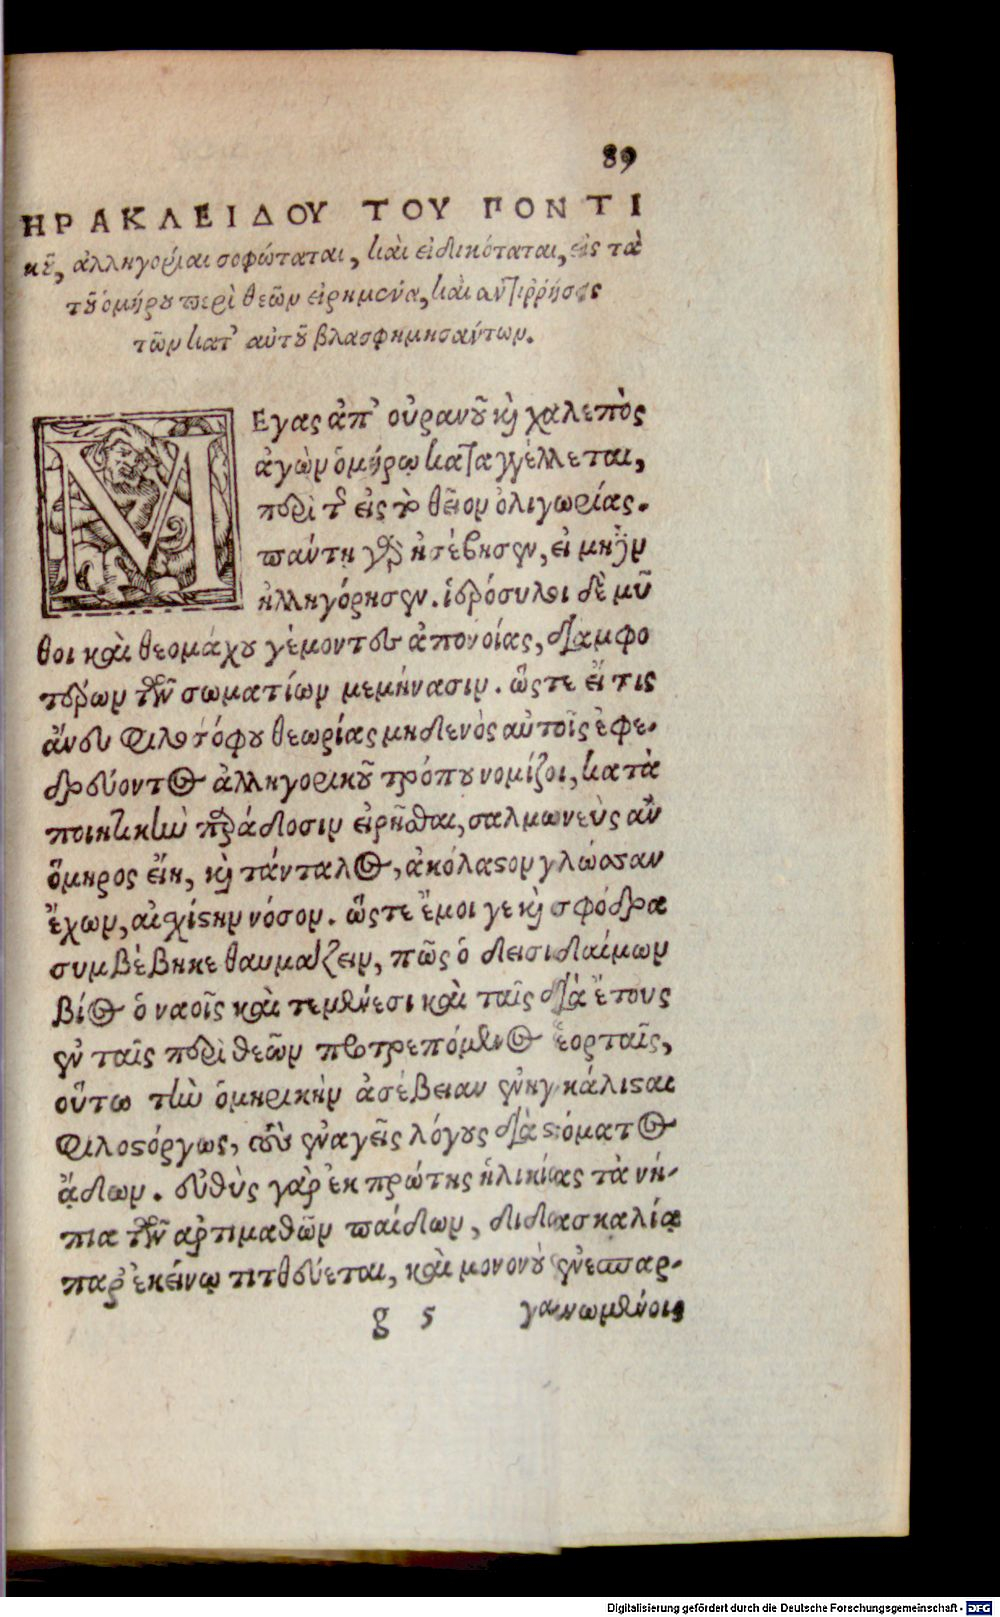 89
ΗΡΑΚΛΕΙΔΟΥ ΤΟΥ ΠΟΝΤΙ
κοῦ, ἀλληγορίαι σοφώταται, καὶ εἰδικόταται, εἰς τὰ
τοῦ ὁμήρου περὶ θεῶν εἰρημένα, καὶ ἀντιρρήσεις
τῶν κατ' αὐτοῦ βλασφημησάντων.
ΜΕγας ἀπ' οὐρανοῦ καὶ χαλεπὸς
ἀγὼν ὁμήρῳ καταγγέλλεται,
περὶ τῆς εἰς τὸ θεῖον ὀλιγωρίας.
πάντη γὰρ ἠσέβησεν, εἰ μηδὲν
ἠλληγόρησεν. ἱερόσυλοι δὲ μῦ
θοι καὶ θεομάχου γέμοντες ἀπονοίας, δι' ἀμφο
τέρων τῶν σωματίων μεμήνασιν. ὥστε εἴ τις
ἄνευ φιλοσόφου θεωρίας μηδενὸς αὐτοῖς ἐφε-
δρεύοντος ἀλληγορικοῦ τρόπου νομίζοι, κατὰ
ποιητικὴν παράδοσιν εἰρῆσθαι, σαλμωνεὺς ἂν
ὅμηρος εἴη, καὶ τάνταλος, ἀκόλαστον γλῶσσαν
ἔχων, αἰσχίστην νόσον. ὥστε ἔμοι γε καὶ σφόδρα
συμβέβηκε θαυμάζειν, πῶς ὁ δεισιδαίμων
βίος ὁ ναοῖς καὶ τεμένεσι καὶ ταῖς διὰ ἔτους
ἐν ταῖς περὶ θεῶν προτρεπόμενος ἑορταῖς,
οὕτω τὴν ὁμηρικὴν ἀσέβειαν ἐνηγκάλισται
φιλοστόργως, τοὺς ἐναγεῖς λόγους διὰ στόματος
ᾄδων. εὐθὺς γὰρ ἐκ πρώτης ἡλικίας τὰ νή-
πια τῶν ἀρτιμαθῶν παίδων, διδασκαλίᾳ
παρ' ἐκείνῳ τιτθεύεται, καὶ μονονοὺ ἐνεσπαρ-
g 5 γανωμένοις
Digitalisierung gefördert durch die Deutsche Forschungsgemeinschaft - DFG